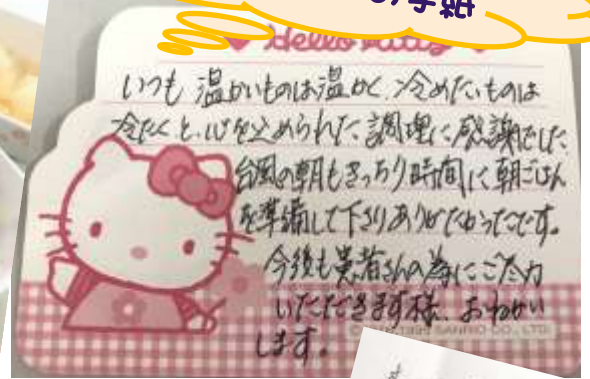 お手紙
Hello Kitty
いつも温かいものは温かく、冷めたいものは
冷たくと、心を込められた、調理に感謝でした
台風の朝もきっちり時間に朝ごはん
を準備して下さりありがたかったです。
今後も患者さんの為にご尽力
いただきます様、おねがい
します。
SANRIO CO., LTD.